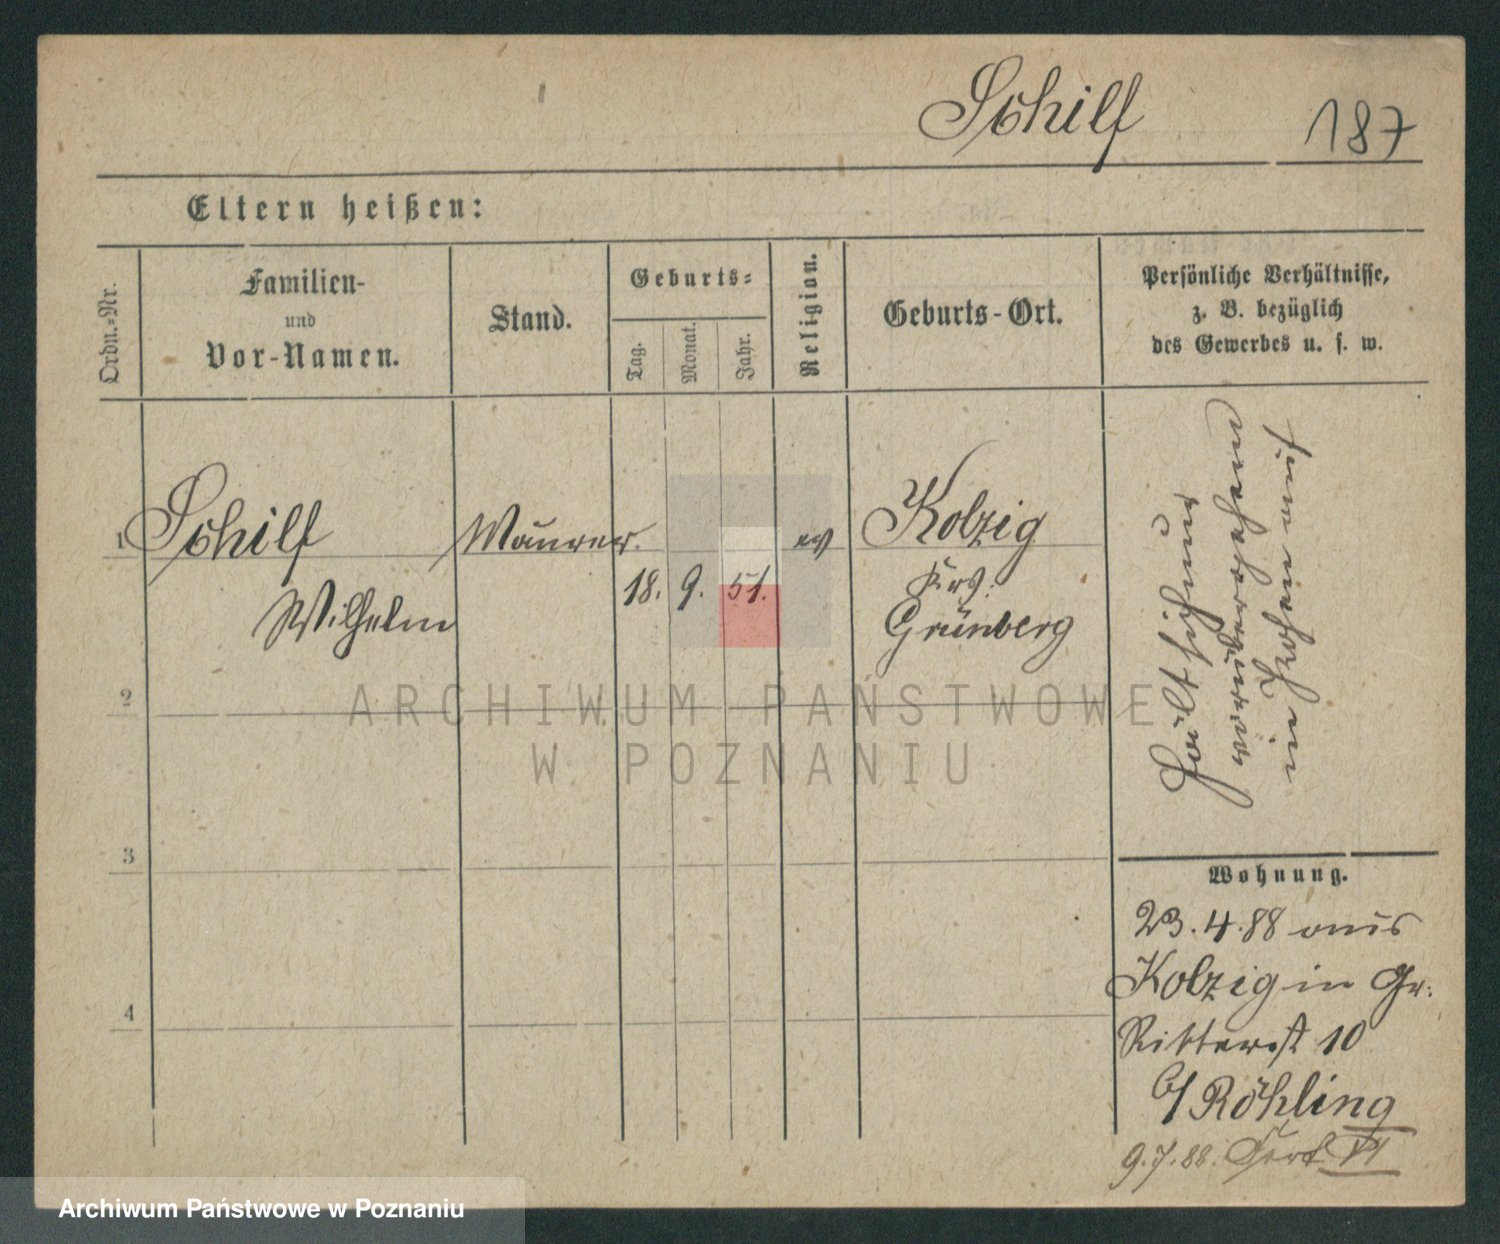 Schilf 187
Eltern heißen:
Ordn.-Nr.
Familien-
und
Vor-Namen.
Stand.
Geburts-
Tag.
Monat.
Jahr.
Religion.
Geburts-Ort.
Persönliche Verhältnisse,
z. B. bezüglich
des Gewerbes u. s. w.
1 Schilf Maurer. ev Kolzig
Wilhelm 18. 9. 51. Krs. Grünberg
hält sich nur
vorübergehend
in Posen auf
2
3
4
Wohnung.
23.4.88 aus
Kolzig in Gr.
Ritterst 10
b/ Röhling
9.7.88. VI
ARCHIWUM PAŃSTWOWE
W POZNANIU
Archiwum Państwowe w Poznaniu